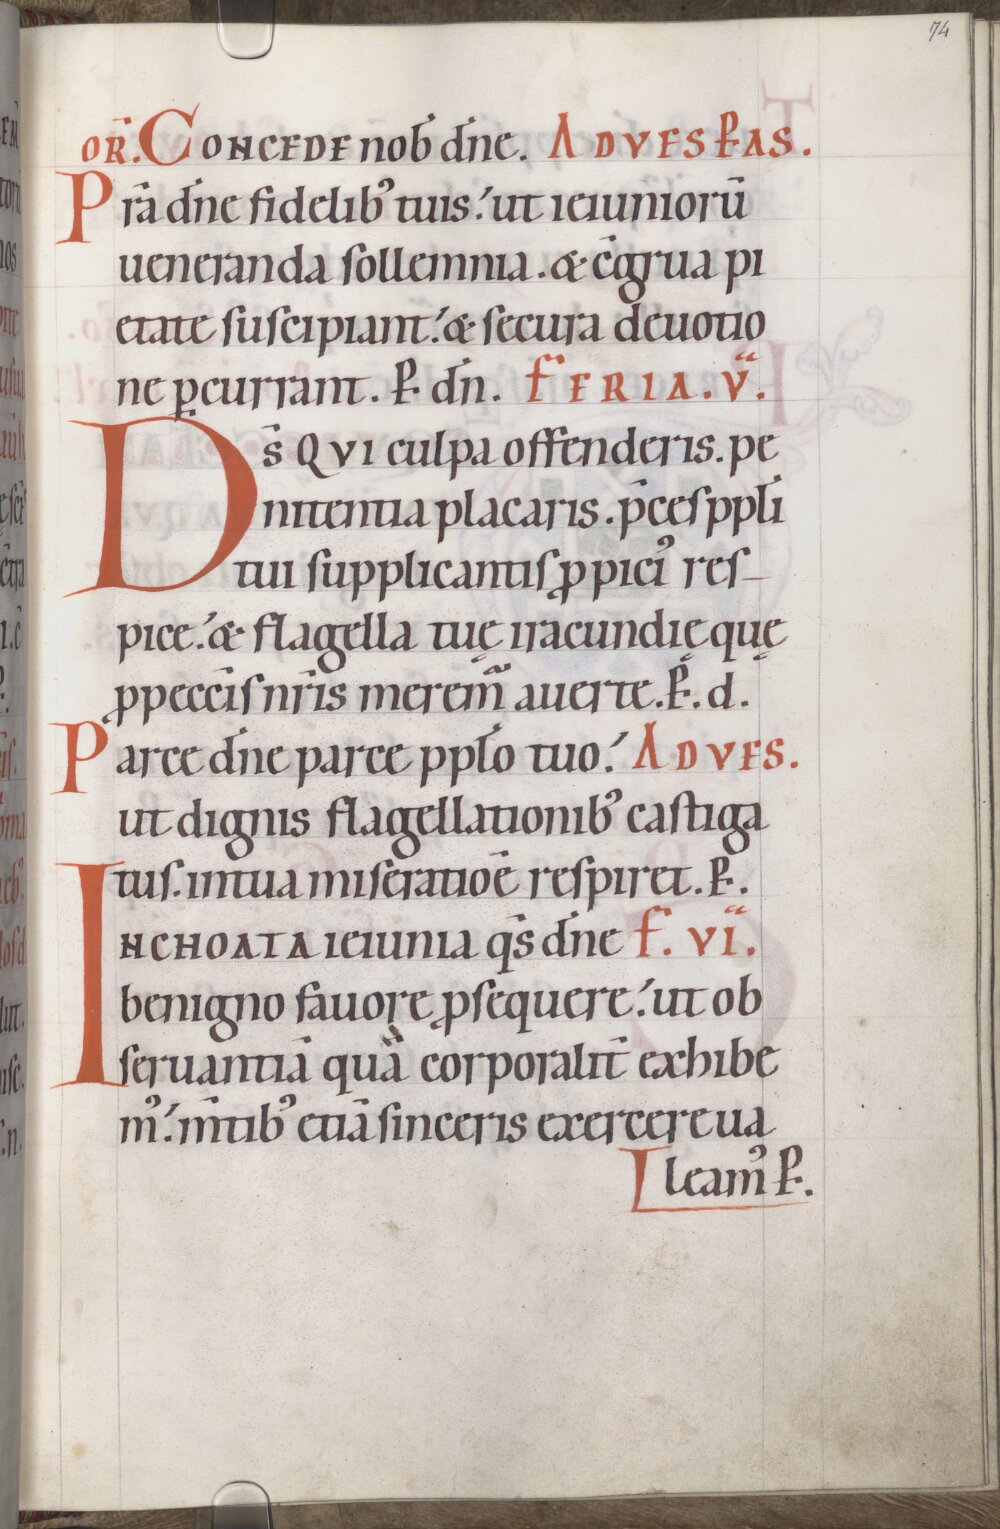 74
OR̄. CONCEDE nob̄ dn̄e. AD VESP̄AS.
Prā dn̄e fidelibꝰ tuis.ʼ ut ieiuniorū
ueneranda sollemnia. & c̄grua pi
etate suscipiant.ʼ & secura deuotio
ne ꝑcurrant. P̄. dn̄. FERIA. V̄.
Ds̄ QVI culpa offenderis. pe
nitentia placaris. p̄ces ppli̅
tui supplicantis ꝓpiciꝰ res-
pice.ʼ & flagella tuę iracundię quę
ꝓ pecc̄is nr̄is merem̄ auerte. P̄. d.
Parce dn̄e parce ppl̄o tuo.ʼ AD VES.
ut dignis flagellationibꝰ castiga
tus. in tua miseratioē respiret. P̄.
INCHOATA ieiunia qs̄ dn̄e F̄. VĪ.
benigno fauore ꝓsequere.ʼ ut ob
seruantiā quā corporalit̄ exhibe
mꝰ.ʼ m̄tibꝰ etiā sinceris exercere ua
leamꝰ P̄.